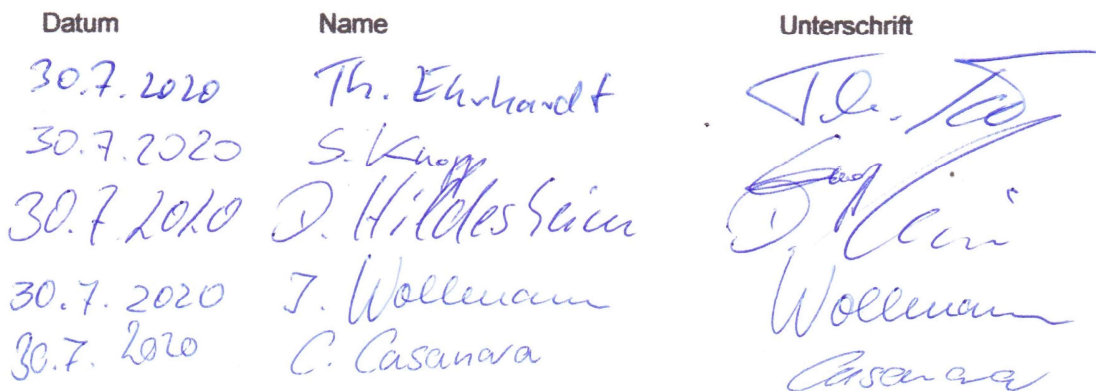 Datum Name Unterschrift
30.7.2020 Th. Ehrhardt Th.
30.7.2020 S. Knopp
30.7.2020 D. Hildesheim D.
30.7.2020 J. Wollmann Wollmann
30.7.2020 C. Casanova Casanova